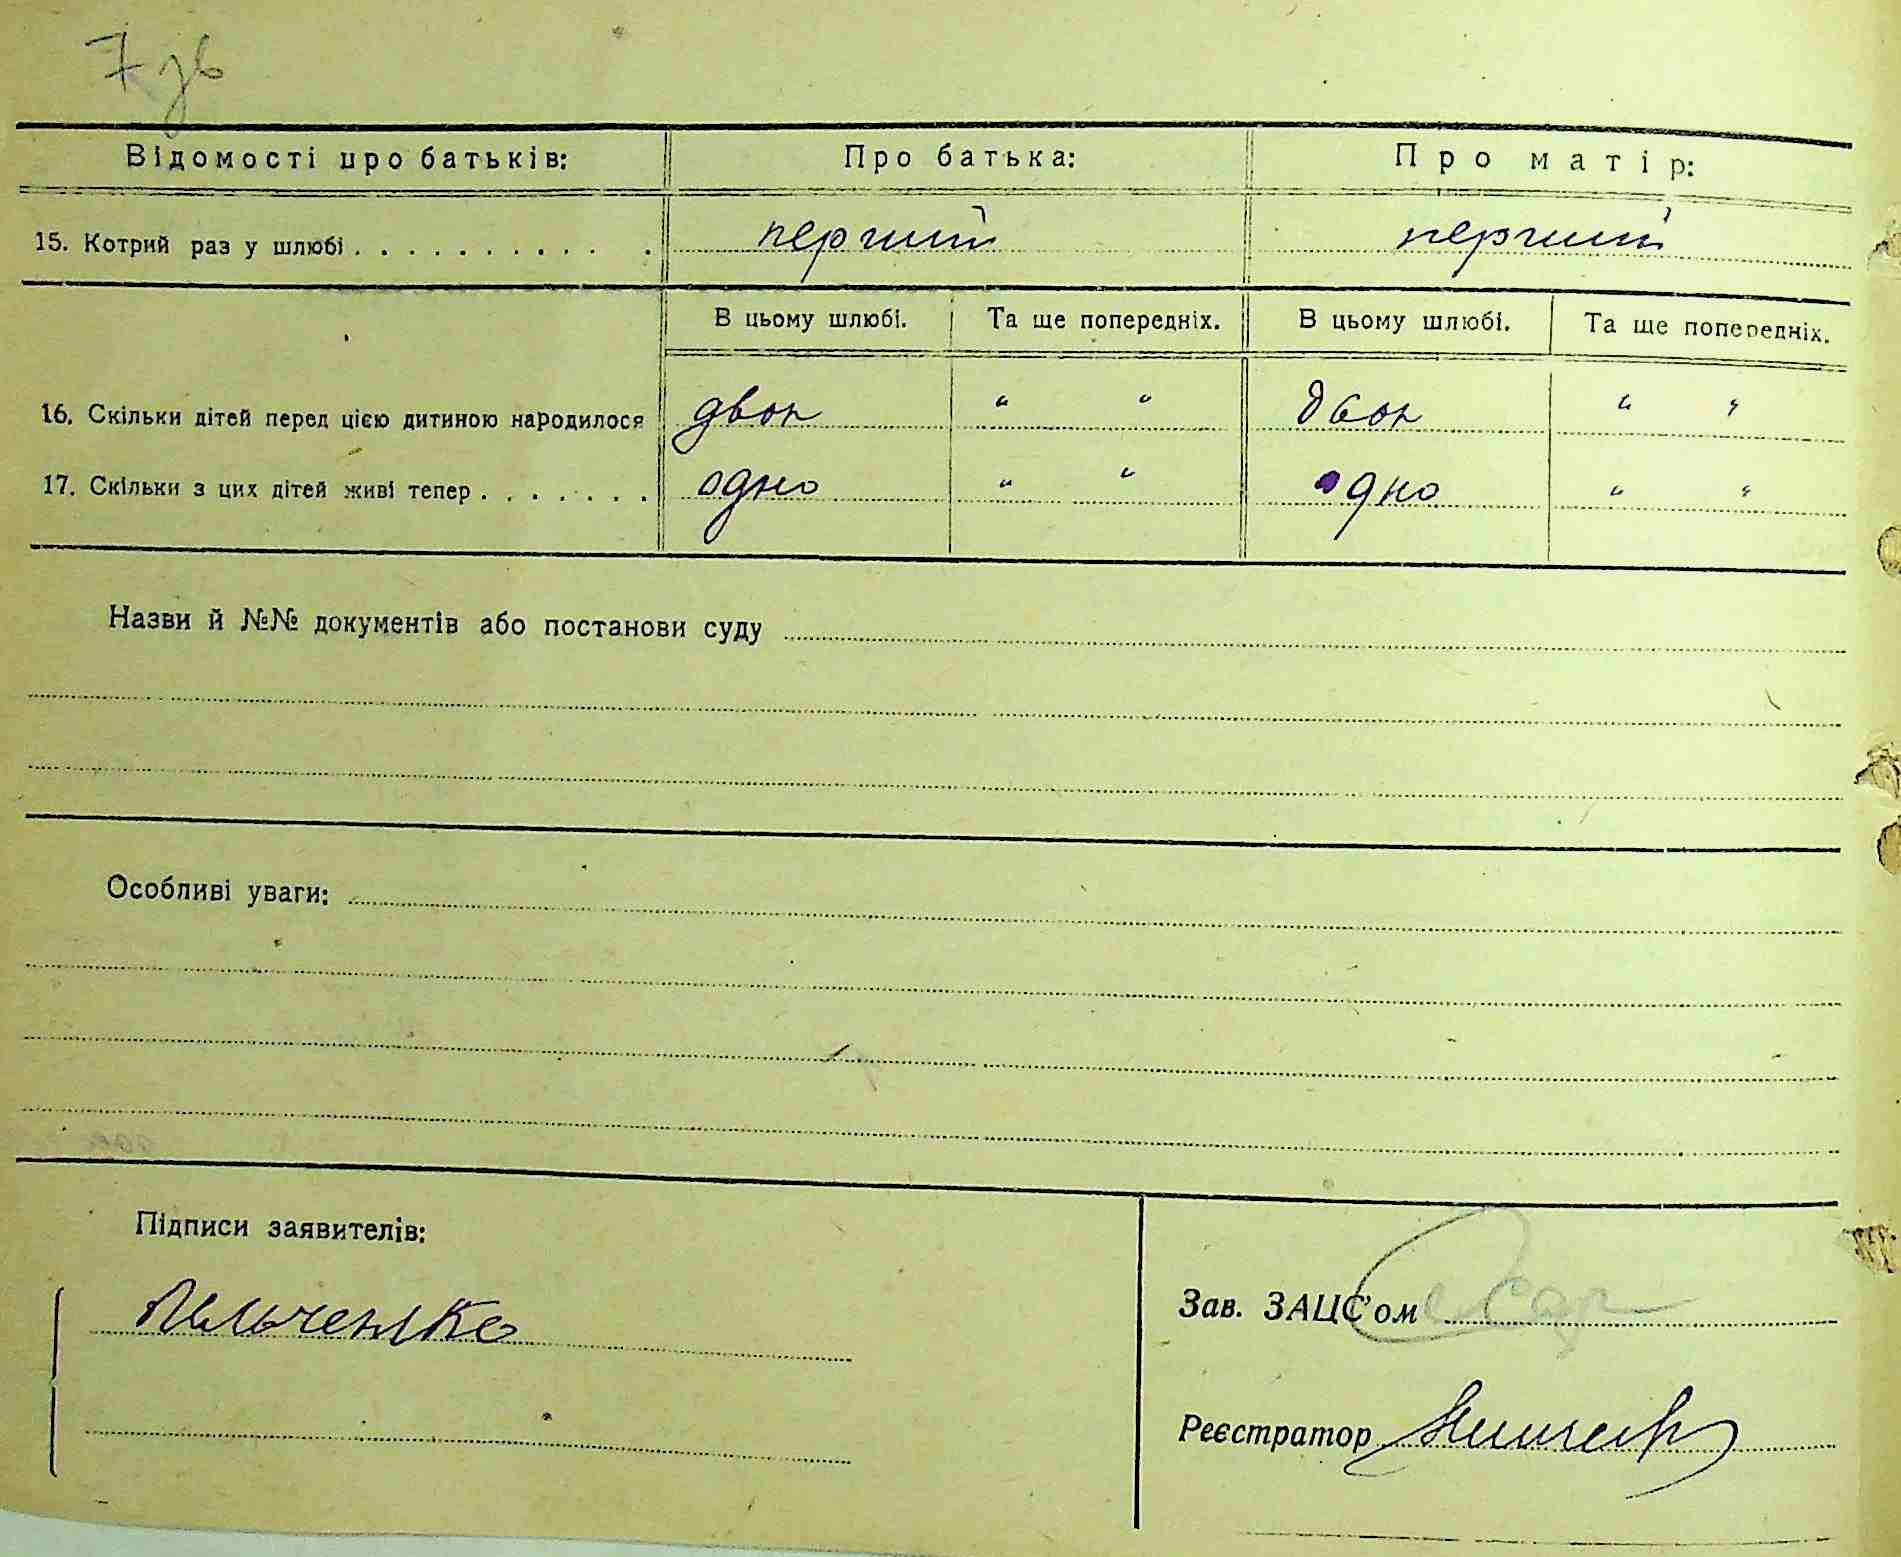 7 зв
Відомості про батьків: Про батька: Про матір:
15. Котрий раз у шлюбі . . . . . . . . . . . . перший перший
В цьому шлюбі. Та ще попередніх. В цьому шлюбі. Та ще попередніх.
16. Скільки дітей перед цією дитиною народилося двоє " " двоє " "
17. Скільки з цих дітей живі тепер . . . . . . . одно " " одно " "
Назви й №№ документів або постанови суду
Особливі уваги:
Підписи заявителів:
Зав. ЗАЦС'ом
Пальченко
Реєстратор